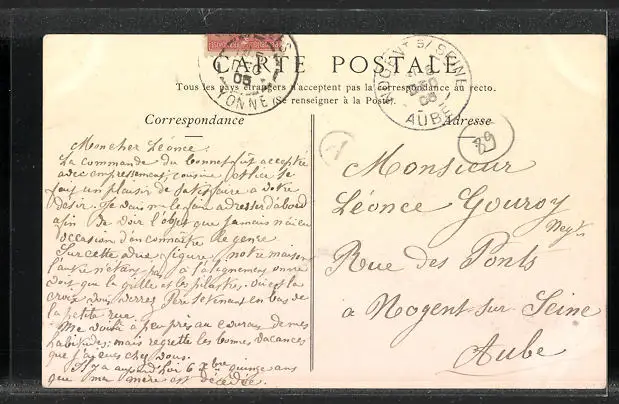 CARTE POSTALE
Tous les pays étrangers n'acceptent pas la correspondance au recto.
(Se renseigner à la Poste)
Correspondance
Adresse
YONNE
NOGENT S/ SEINE
AUBE
Mon cher Léonce
La commande du bonnet fut acceptée
avec empressement, cousine
fait un plaisir de satisfaire à votre
désir. Je vais me le faire adresser d'abord
afin de voir l'objet que jamais n'ai eu
occasion d'en connaître le genre
Sur cette figure notre maison
l'autre n'étant pas à l'alignement on ne
voit que la grille et les pilastres. où est la
croix vous verrez Père se tenant en bas de
la petite rue.
Me voilà à peu près au courant de mes
habitudes; mais regrette les bonnes vacances
que j'ai eues chez vous.
Il y a aujourd'hui 6 Xbre quinze ans
que ma mère est décédée.
Monsieur
Léonce Gouroy
Negt
Rue des Ponts
à Nogent-sur-Seine
Aube